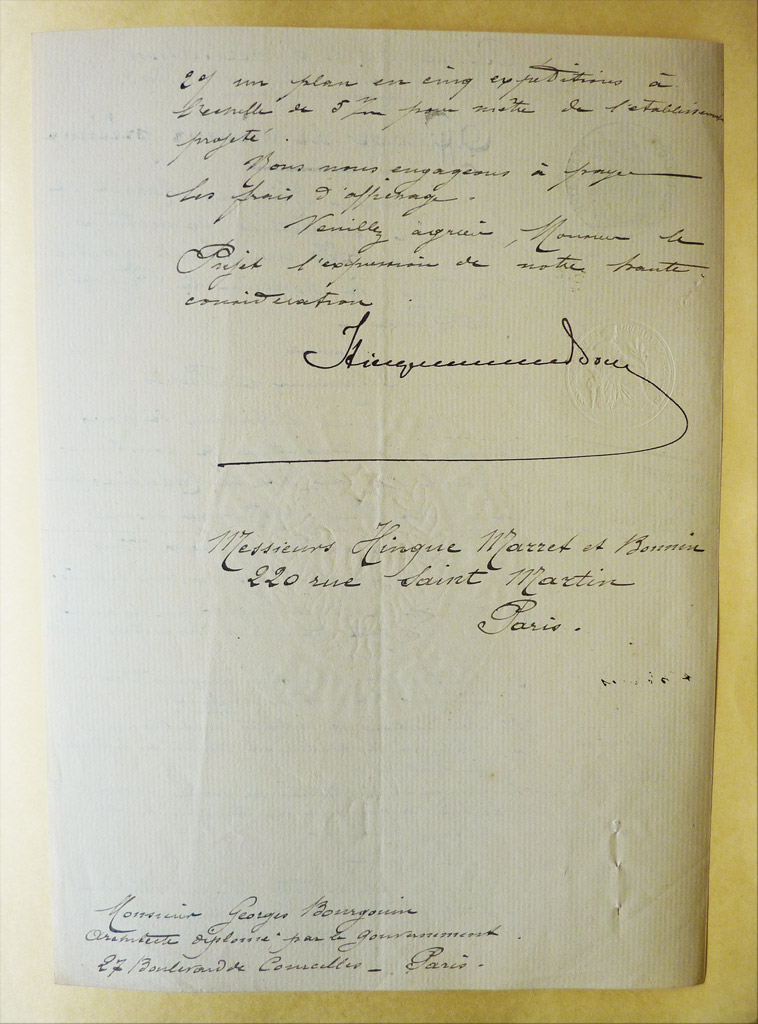 2° un plan en cinq expeditions à
l'echelle de 5 m/m pour mètre de l'etablissement
projeté.
Nous nous engageons à payer
les frais d'affichage.
Veuillez agréer, Monsieur le
Préfet l'expression de notre haute
consideration
Messieurs Hingue Marret et Bonnin
220 rue Saint Martin
Paris.
Monsieur Georges Bourgouin
architecte diplomé par le gouvernement.
27 Boulevard de Courcelles - Paris.